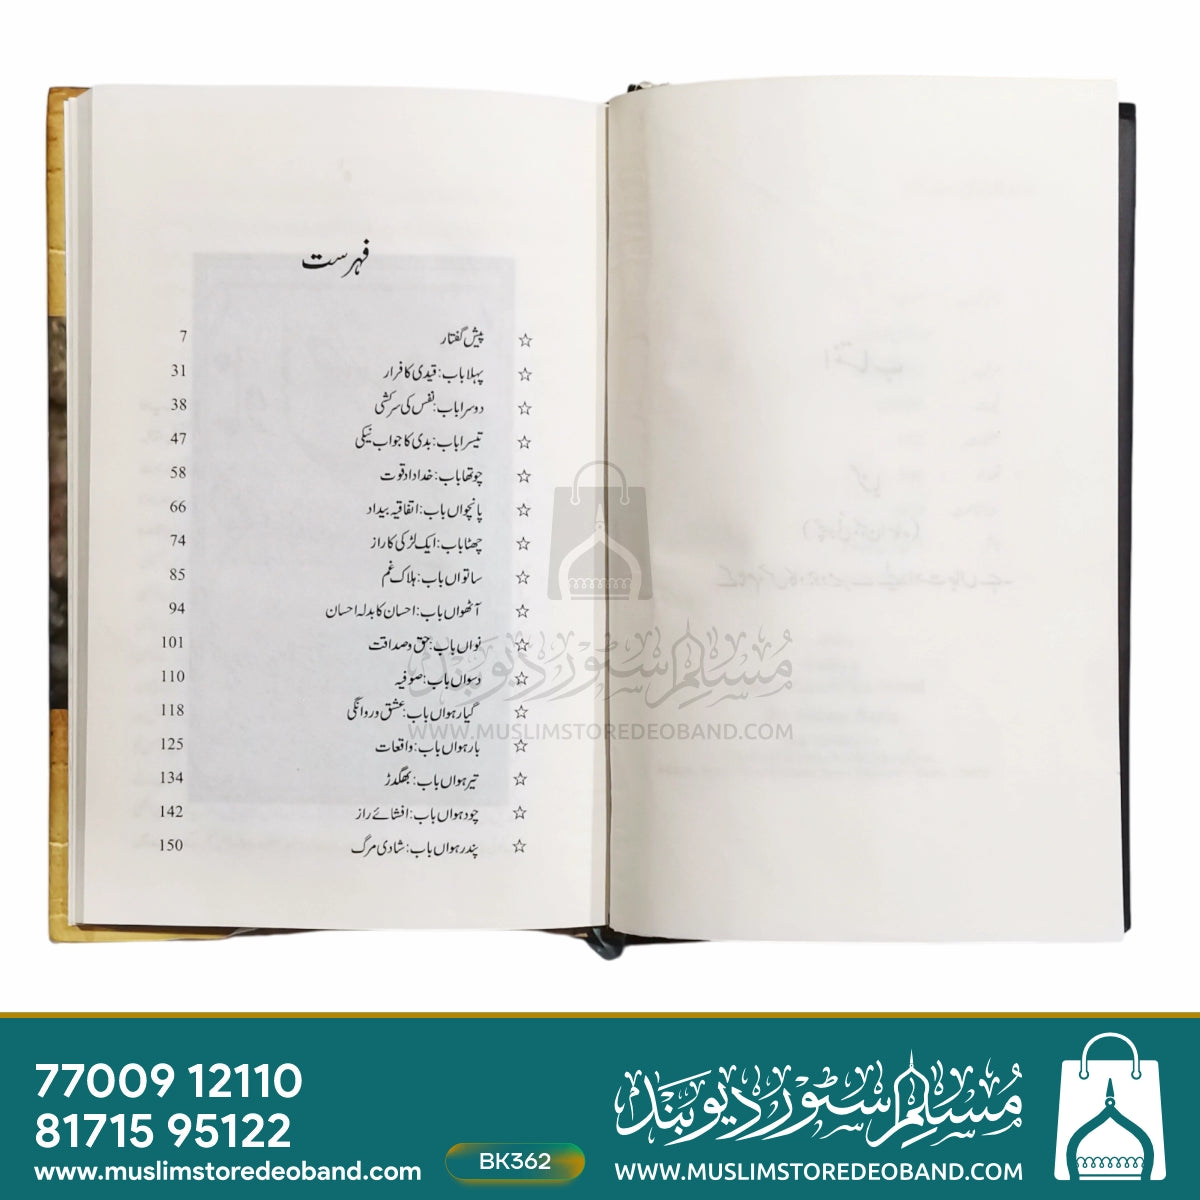 فہرست
☆ پیش گفتار 7
☆ پہلا باب: قیدی کا فرار 31
☆ دوسرا باب: نفس کی سرکشی 38
☆ تیسرا باب: بدی کا جواب نیکی 47
☆ چوتھا باب: خداداد قوت 58
☆ پانچواں باب: اتفاقیہ بیداد 66
☆ چھٹا باب: ایک لڑکی کا راز 74
☆ ساتواں باب: ہلاک غم 85
☆ آٹھواں باب: احسان کا بدلہ احسان 94
☆ نواں باب: حق و صداقت 101
☆ دسواں باب: صوفیہ 110
☆ گیارہواں باب: عشق وروانگی 118
☆ بارہواں باب: واقعات 125
☆ تیرہواں باب: بھگدڑ 134
☆ چودہواں باب: افشائے راز 142
☆ پندرہواں باب: شادی مرگ 150
مسلم سٹور دیوبند
WWW.MUSLIMSTOREDEOBAND.COM
77009 12110
81715 95122
www.muslimstoredeoband.com
BK362
مسلم سٹور دیوبند
WWW.MUSLIMSTOREDEOBAND.COM